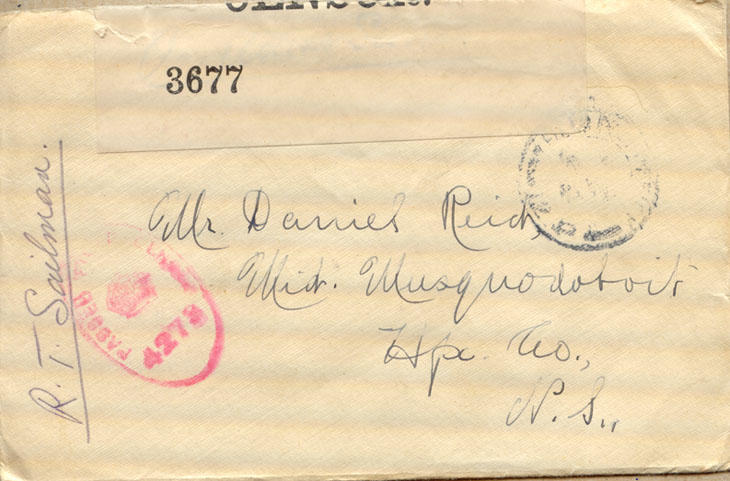 CENSOR.
3677
Mr. Daniel Reid,
Mid. Musquodoboit
Hfx. Co.,
N.S.,
R. T. Sailman.
PASSED
4273